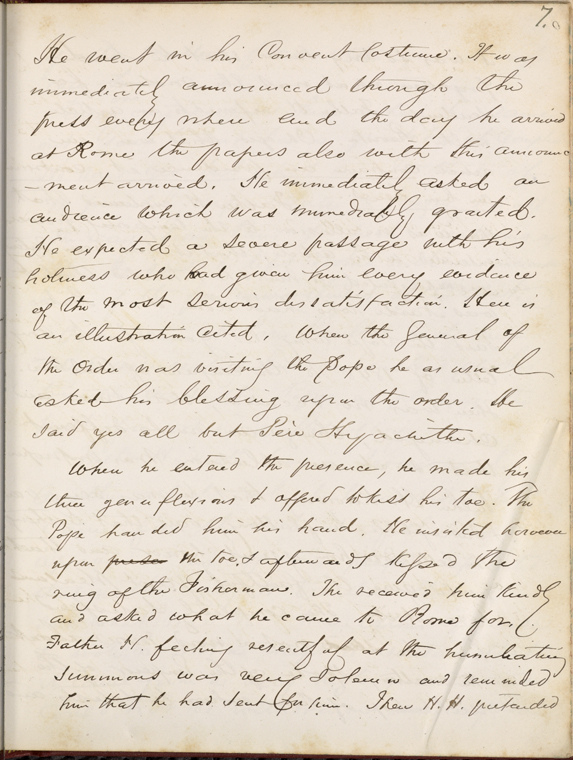 7.
He went in his Convent Costume. It was
immediately announced through the
press every where and the day he arrived
at Rome the papers also with this announc
-ment arrived. He immediately asked an
audience which was immediately granted.
He expected a severe passage with his
holiness who had given him every evidence
of the most serious dissatisfaction. Here is
an illustration cited. When the General of
the Order was visiting the Pope he as usual
asked his blessing upon the order. He
said yes all but Père Hyacinthe.
When he entered the presence, he made his
three genuflexions & offered to kiss his toe. The
Pope handed him his hand. He insisted however
upon the toe, & afterwards kissed the
ring of the Fisherman. He received him kindly
and asked what he came to Rome for.
Father H. feeling resentful at the humiliating
summons was very solemn and reminded
him that he had sent for him. Then H. H. pretended